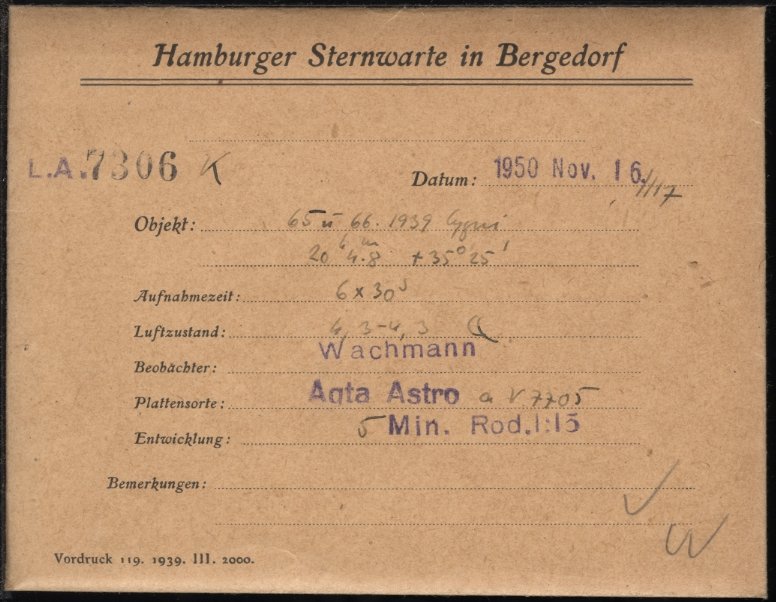 Hamburger Sternwarte in Bergedorf
L.A. 7306 K
Datum: 1950 Nov. 16./17
Objekt: 65 u 66. 1939 Cygni
20ʰ 4.ᵐ8 +35° 25'
Aufnahmezeit: 6 x 30ˢ
Luftzustand: 4, 3-4, 3
Wachmann
Beobachter:
Plattensorte: Agfa Astro a V 7705
Entwicklung: 5 Min. Rod. 1:15
Bemerkungen:
W
Vordruck 119. 1939. III. 2000.